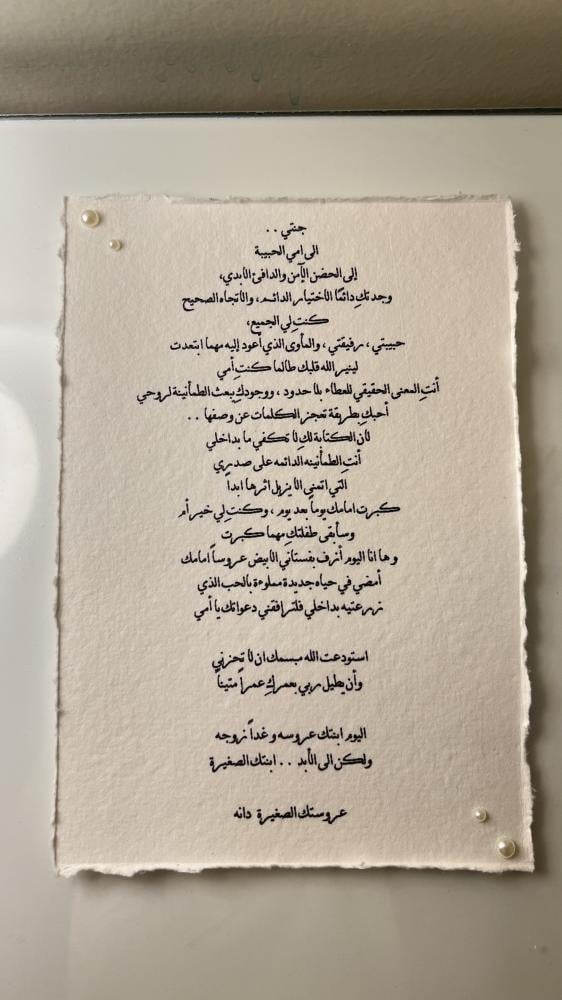 جنتي ..
الى امي الحبيبة
إلى الحضن الآمن والدافئ الأبدي،
وجدتكِ دائمًا الاختيار الدائم، والاتجاه الصحيح
كنتِ لي الجميع،
حبيبتي، رفيقتي، والمأوى الذي أعود إليه مهما ابتعدت
لينير الله قلبك طالما كنتِ أمي
أنتِ المعنى الحقيقي للعطاء بلا حدود، ووجودكِ يبعث الطمأنينة لروحي
أحبكِ بطريقة تعجز الكلمات عن وصفها ..
لأن الكتابة لكِ لا تكفي ما بداخلي
أنتِ الطمأنينه الدائمه على صدري
التي اتمنى الا يزيل اثرها ابداً
كبرت امامك يوماً بعد يوم، وكنتِ لي خير أم
وسأبقى طفلتكِ مهما كبرت
وها انا اليوم أزف بفستاني الأبيض عروساً امامك
أمضي في حياه جديدة مملوءة بالحب الذي
زرعتيه بداخلي فلترافقني دعواتك يا أمي
استودعت الله مبسمك ان لا تحزني
وأن يطيل ربي بعمركِ عمراً متيناً
اليوم ابنتك عروسه وغداً زوجه
ولكن الى الأبد .. ابنتك الصغيرة
عروستك الصغيرة دانه